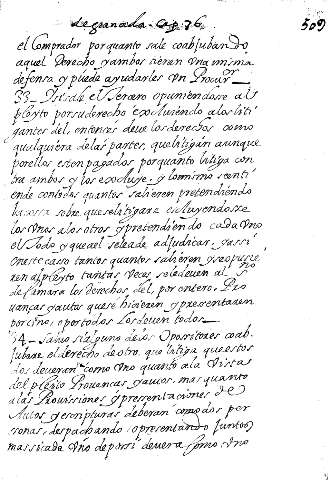 de granada. Cap. 76. 509
el Comprador por quanto sale coadjubando
aquel derecho y ambos hacen una misma
defensa y puede ayudarles un Procur.or
53 - Si sale el tercero oponiendose al
pleyto por su derecho excluiendo a los liti
gantes del, entonces deve los derechos como
qualquiera de las partes, que litigan aunque
por ellos esten pagados por quanto litiga con
tra ambos y los excluye. y lo mismo se enti
ende con todos quantos salieren pretendiendo
la cossa sobre que se litigare excluyendosse
los unos a los otros y pretendiendo cada uno
el todo y que a el se le a de adjudicar. y assi
en este caso tantos quantos salieren y se opusie
ren al pleyto tantas veces se le deven al
de Camara los derechos del, por entero. Pro
vanças y autos que se hicieren y presentaren
por uno, o por todos los deven todos
54 - Salvo si alguno de los Opositores coad
jubare el derecho de otro, que litiga que estos
dos deveran como uno quanto a la Vista
del pleyto Provanças y autos, mas quanto
a las Provissiones y presentaciones de
Autos y escripturas deberan como dos per
sonas, despachando, o presentando juntos
mas si cada uno de por si devera como uno